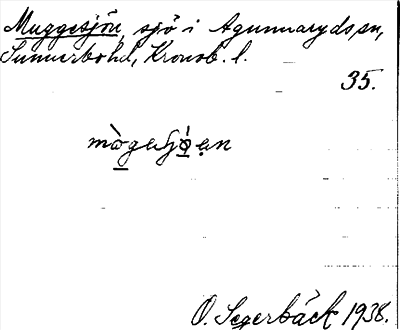 Muggesjön, sjö i Agunnaryds sn,
Sunnerbo hd, Kronob. l.
35.
O. Segerbäck 1938.